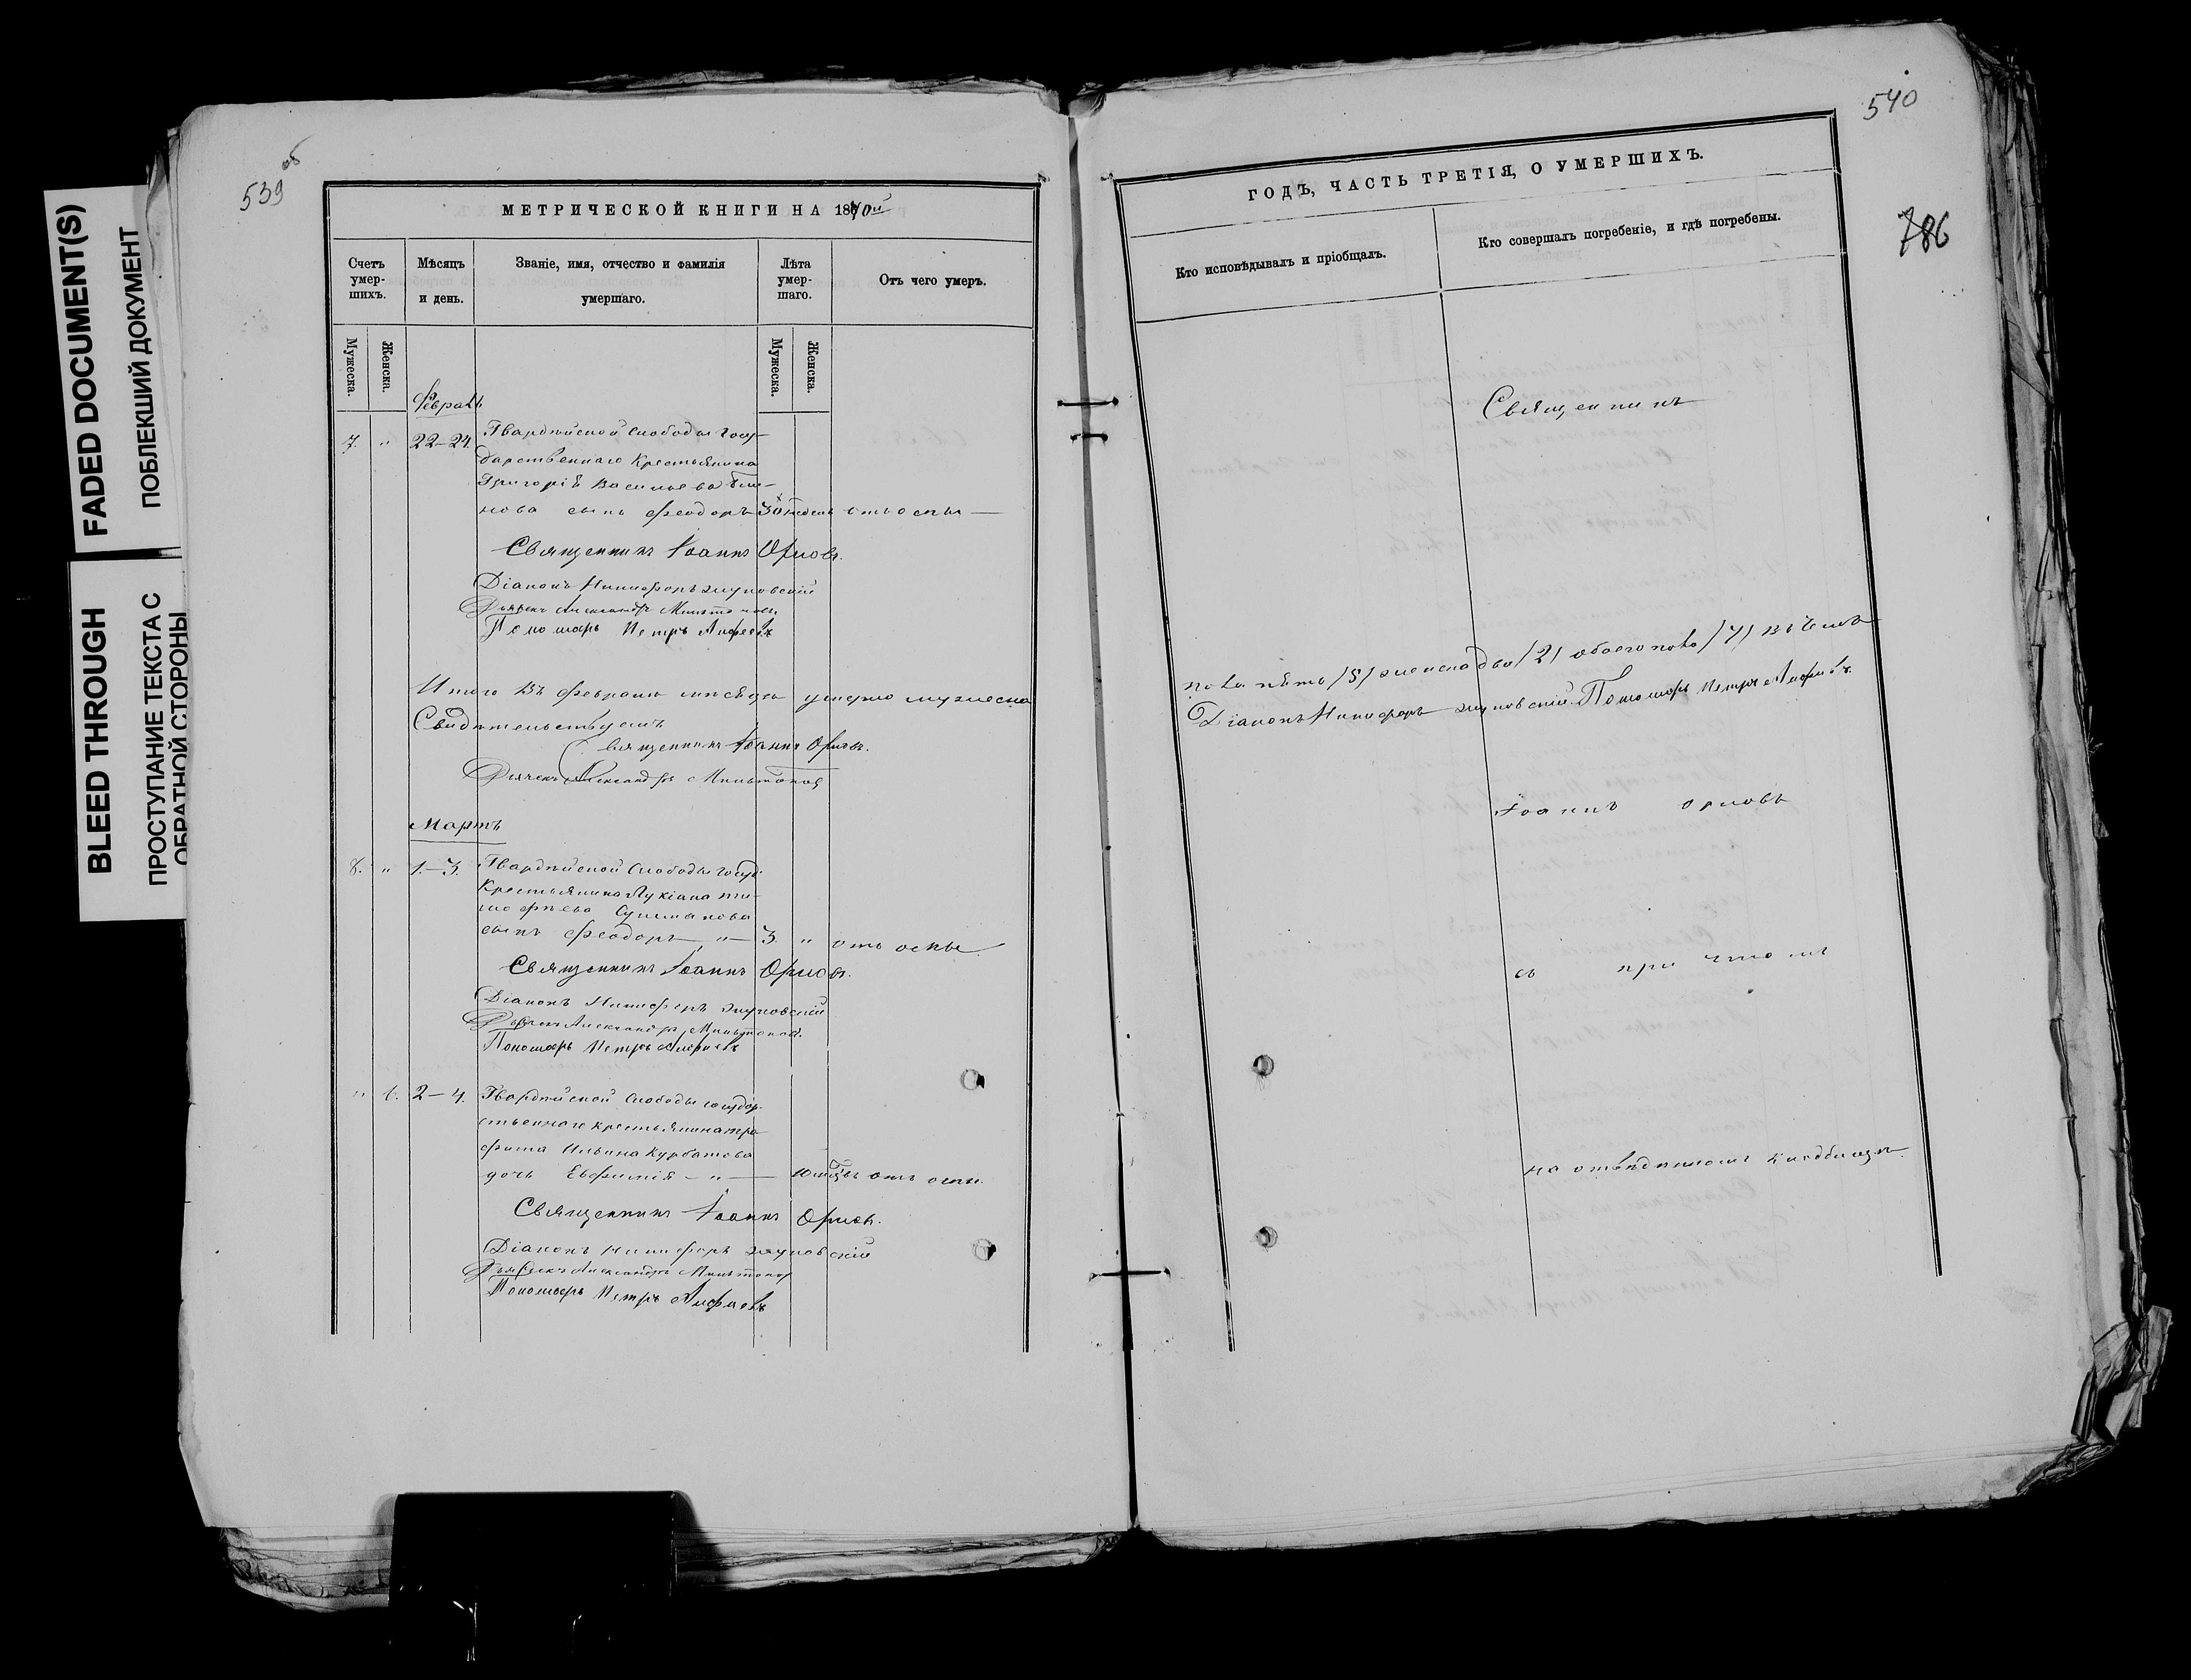 FADED DOCUMENT(S)
ПОБЛЕКШИЙ ДОКУМЕНТ
BLEED THROUGH
ПРОСТУПАНИЕ ТЕКСТА С
ОБРАТНОЙ СТОРОНЫ
539 об
МЕТРИЧЕСКОЙ КНИГИ НА 1870й
Счетъ умер-шихъ.
Мѣсяцъ и день.
Званіе, имя, отчество и фамилія умершаго.
Лѣта умер-шаго.
Отъ чего умеръ.
Мужеска.
Женска.
Мужеска.
Женска.
Февраль
7. " 22–24. Гвардейской слободы госу-
дарственнаго крестьянина
Григорія Васильева
нова сынъ Феодоръ отъ оспы
Священникъ Іоаннъ Орловъ.
Діаконъ Никифоръ Жуковскій
Дьячекъ Александръ
Пономарь Петръ Алфеевъ
Итого въ феврале месяце умерло мужеска
Свидѣтельствуемъ
Священникъ Іоаннъ Орловъ.
Дьячекъ Александръ
Мартъ
8. " 1.–3. Гвардейской слободы госуд.
крестьянина Лукіана Ти-
мофеева
сынъ Феодоръ " 3. " отъ оспы
Священникъ Іоаннъ Орловъ.
Діаконъ Никифоръ Жуковскій
Дьячекъ Александръ
Пономарь Петръ Алфеевъ
" 6. 2–4. Гвардейской слободы государ-
ственнаго крестьянина Тро-
фима Ильина Курбатова
дочь Евфимія " отъ оспы.
Священникъ Іоаннъ Орловъ.
Діаконъ Никифоръ Жуковскій
Дьячекъ Александръ
Пономарь Петръ Алфеевъ
540
786
ГОДЪ, ЧАСТЬ ТРЕТІЯ, О УМЕРШИХЪ.
Кто исповѣдывалъ и пріобщалъ.
Кто совершалъ погребеніе, и гдѣ погребены.
Священникъ
пола пять /5/ женска два /2/ обоего пола /7/ въ чемъ
Діаконъ Никифоръ Жуковскій. Пономарь Петръ Алфеевъ.
Іоаннъ Орловъ
съ причтомъ
на отведенномъ кладбищѣ.